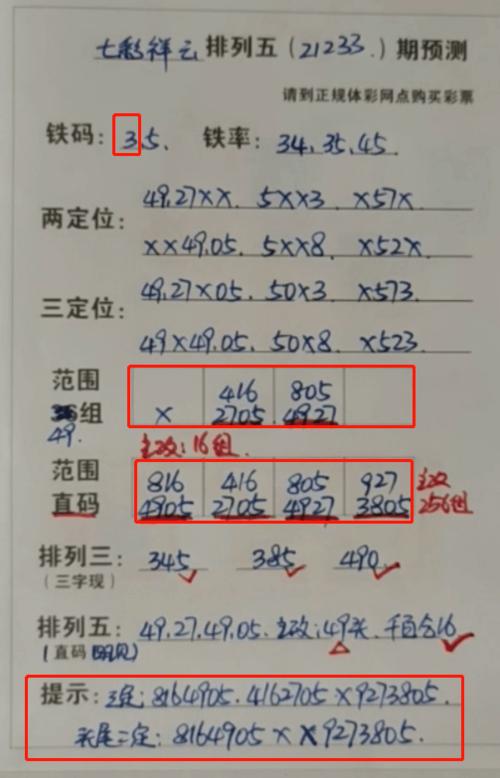 七彩祥云 排列五（21233.）期预测
请到正规体彩网点购买彩票
铁码：3.5、 铁率：34.35.45
两定位：49.27XX. 5XX3. X57X.
XX49.05. 5XX8. X52X.
三定位：49.27X05. 50X3. X573.
49X49.05. 50X8. X523.
范围 416 805
组 X 2705 4927
49.
主攻：16组
范围 816 416 805 927 主攻
直码 4905 2705 4927 3805 256组
排列三：345 385 490
（三字现）
排列五：49.27.49.05.主攻：49头.千百合16
（直码
提示：三定：8164905.4162705X9273805.
头尾二定：8164905XX9273805.